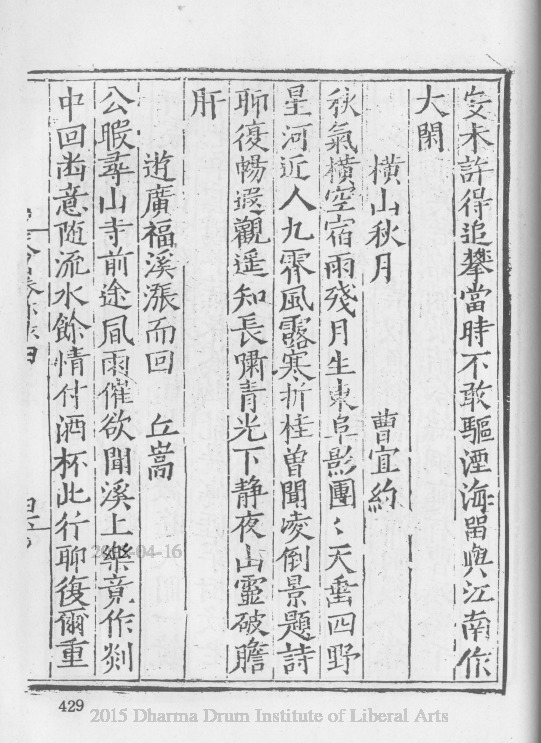 安未許得追攀當時不敢驅湮海畱與江南作
大閑
橫山秋月 曹宜約
秋氣橫空宿雨殘月生東阜影團〻天垂四野
星河近人九霄風露寒折桂曽聞凌倒景題詩
聊復暢遐觀遥知長嘯青光下静夜山靈破膽
肝
遊廣福溪漲而回 丘嵩
公暇尋山寺前途風雨催欲聞溪上樂竟作剡
中回歯意随流水餘情付酒杯此行聊復爾重
429
2015 Dharma Drum Institute of Liberal Arts